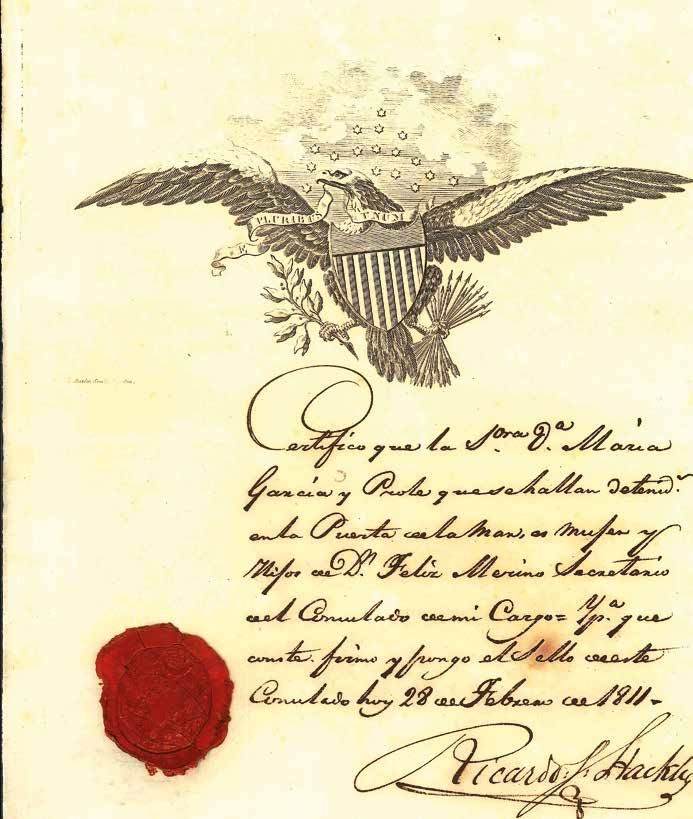 E PLURIBUS UNUM
Certifico que la S.ora D.a Maria
Garcia y Prole que se hallan detenid.s
en la Puerta de la Mar, es muger y
Hijos de D.n Feliz Merino Secretario
del Consulado de mi Cargo = Y p.a que
conste firmo y pongo el Sello de este
Consulado hoy 28 de Febrero de 1811 =
Ricardo S. Hackley